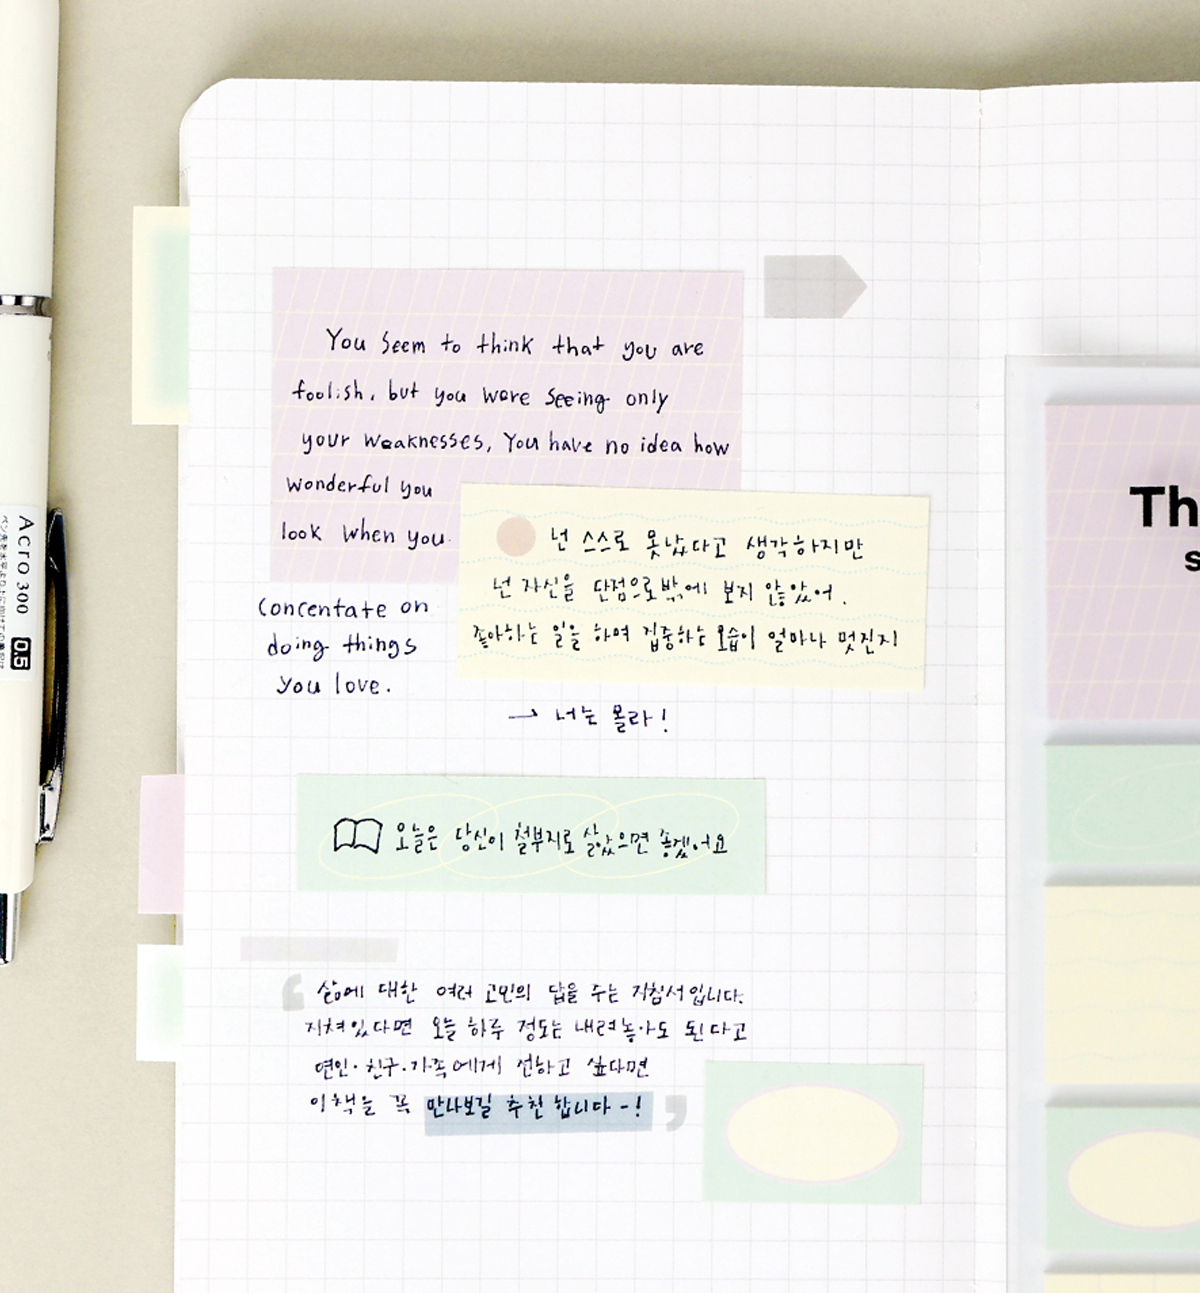 You seem to think that you are
foolish, but you were seeing only
your weaknesses, You have no idea how
wonderful you
look when you
concentate on
doing things
you love.
넌 스스로 못났다고 생각하지만
넌 자신을 단점으로밖에 보지 않았어.
좋아하는 일을 하며 집중하는 모습이 얼마나 멋진지
→ 너는 몰라!
오늘은 당신이 철부지로 살았으면 좋겠어요
“ 삶에 대한 여러 고민의 답을 주는 지침서입니다.
지쳐있다면 오늘 하루 정도는 내려놓아도 된다고
연인·친구·가족에게 전하고 싶다면
이 책을 꼭 만나보길 추천합니다-! ”
Th
s
ACRO 300 0.5